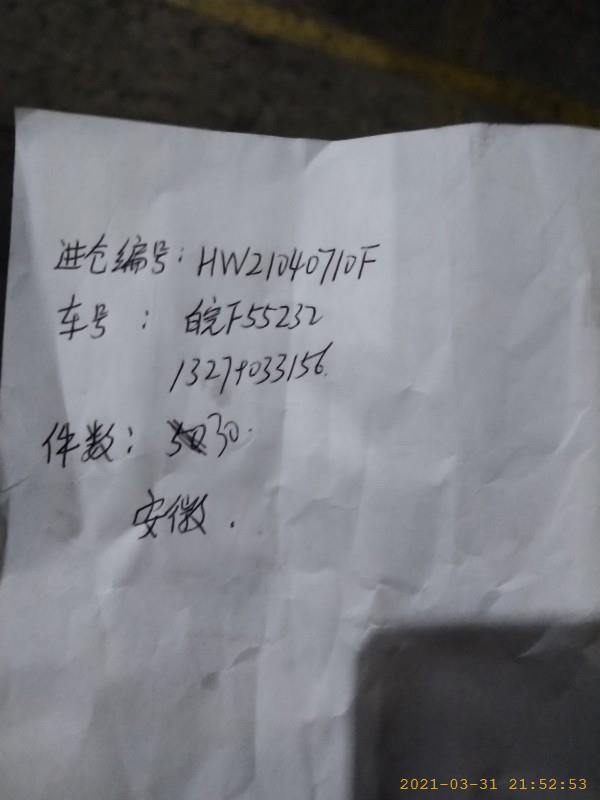 进仓编号：HW21040710F
车号：皖F55232
13279033156
件数：30
安徽.
2021-03-31 21:52:53